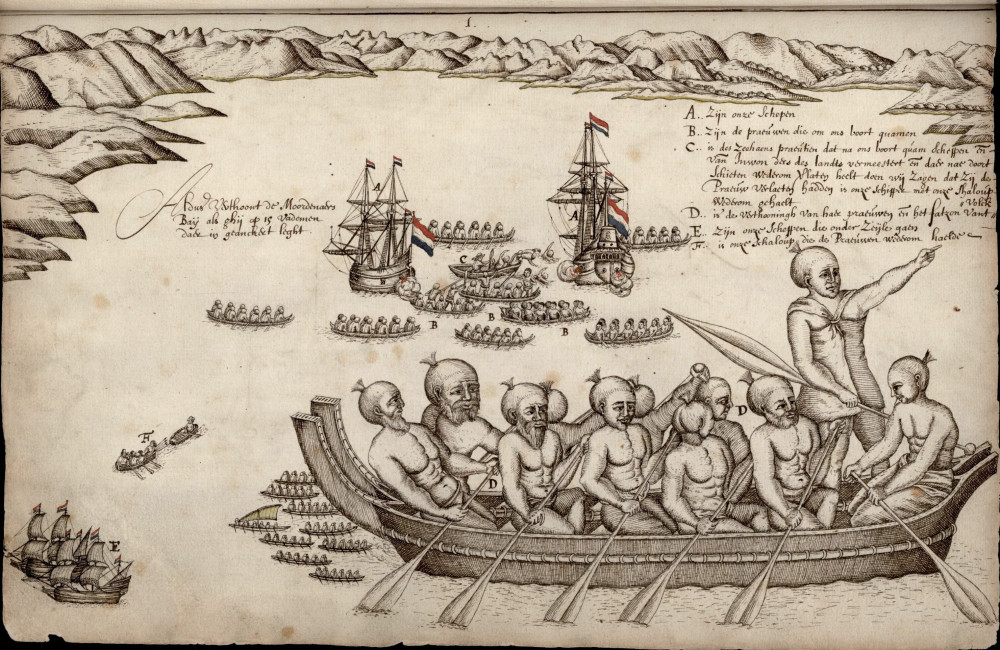 1.
A.. Zijn onze Schepen
B.. Zijn de praeuwen die om ons boort quamen
C.. is des Zeehaens praeutien dat na ons boort quam Scheppen en
van Inwonders des landts vermeestert en daer nae door
Schieten Wederom Verlaten heeft doen wij Zagen dat Zij de
Praeuw Verlaeten hadden is onze Schipper met onze Shaloup
Wederom gehaelt
D.. is de Verthooningh van haer praeuwen en het fatzon van t Volck
E.. Zijn onze Scheppen die onder Zeijle gaen
F.. is onze Schaloup die de Praeuwen wederom haelde
Aldus Verthoont de Moordenaers
Bay als ghij op 15 Vademen
daer in geanckert leght
A
A
C
B
B
B
D
D
F
E